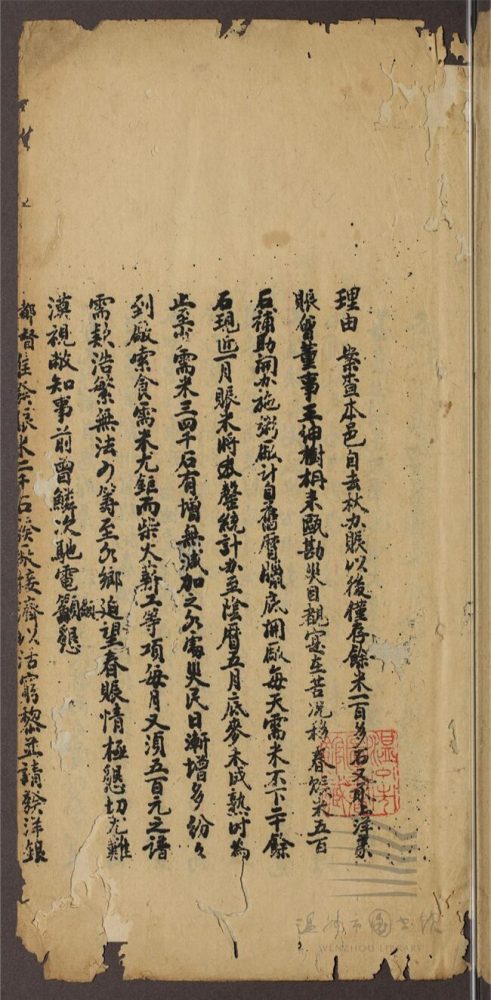 理由 案查本邑自去秋办賑以後僅存餘米一百多石又由上洋義
賑會董事王紳樹枬來甌勘災目覩寔在苦况移春賑米五百
石補助開办施粥廠計自舊曆臘底開廠每天需米不下二十餘
石現近一月賑米將罄統計办至陰曆五月底麥未成熟時為
止至少需米三四千石有增無减加之永嘉災民日漸增多紛々
到廠索食需米尤鉅而柴火薪工等項每月又須五百元之譜
需款浩繁無法可籌至各鄉迫望春賑情極懇切尤難
漠視敝知事前曾鱗次馳電籲懇
都督准發賑米二千石接濟以活窮黎並請發洋銀
温州市圖書館
WENZHOU LIBRARY